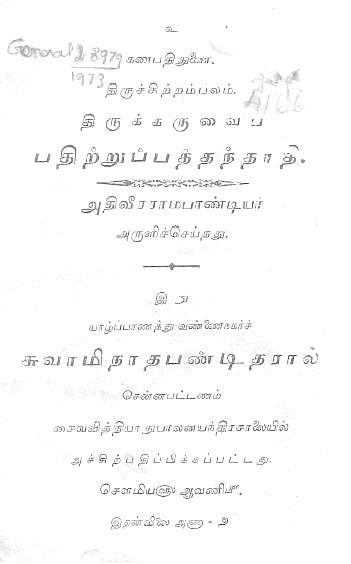 உ
General 2 8979
1973
கணபதிதுணை.
திருச்சிற்றம்பலம்.
A166
திருக்கருவைப்
பதிற்றுப்பத்தந்தாதி.
அதிவீரராமபாண்டியர்
அருளிச்செய்தது.
இது
யாழ்ப்பாணத்து வண்ணைநகர்ச்
சுவாமிநாதபண்டிதரால்
சென்னபட்டணம்
சைவவித்தியாநுபாலனயந்திரசாலையில்
அச்சிற்பதிப்பிக்கப்பட்டது.
சௌமியளு ஆவணிமீ.
இதன்விலை அணா - ௨